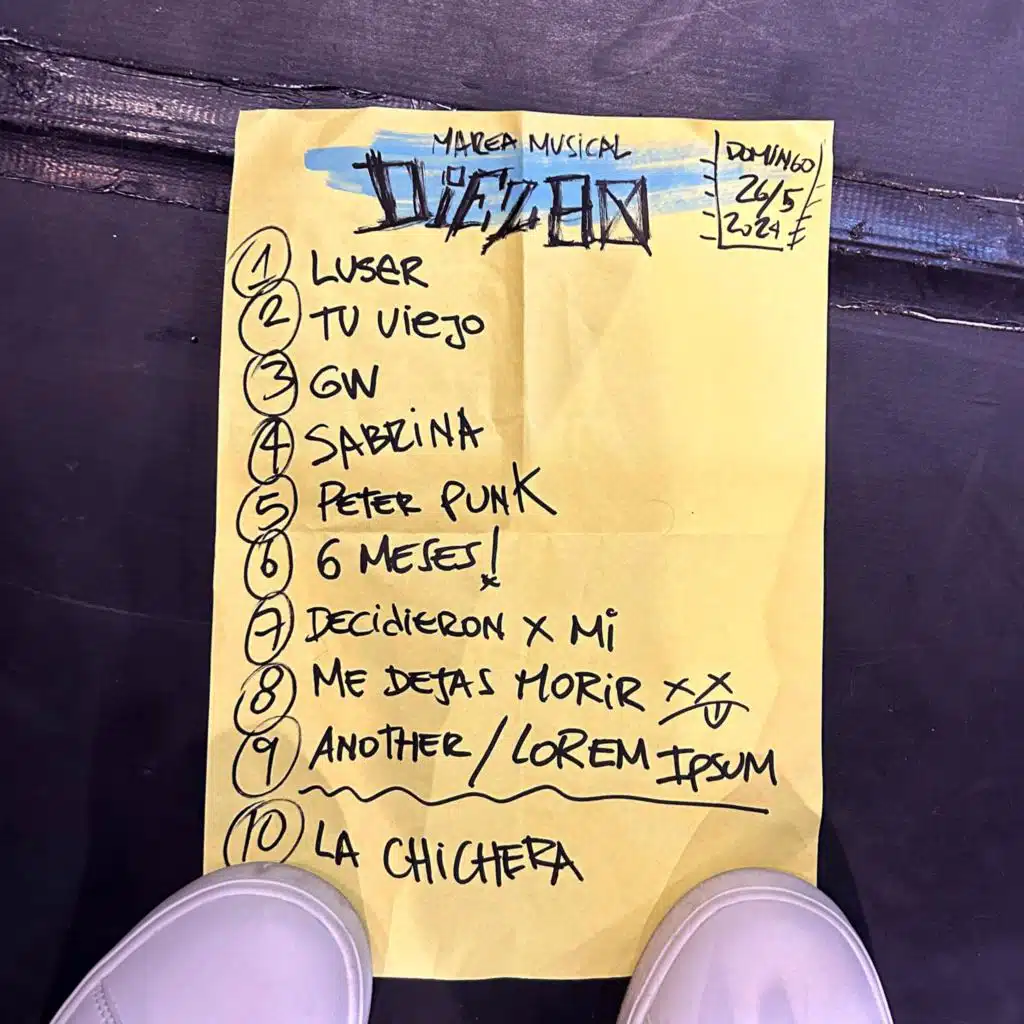 MAREA MUSICAL
DOMINGO
26/5
2024
1 LUSER
2 TU VIEJO
3 GW
4 SABRINA
5 PETER PUNK
6 6 MESES!
7 DECIDIERON X MI
8 ME DEJAS MORIR
9 ANOTHER / LOREM IPSUM
10 LA CHICHERA